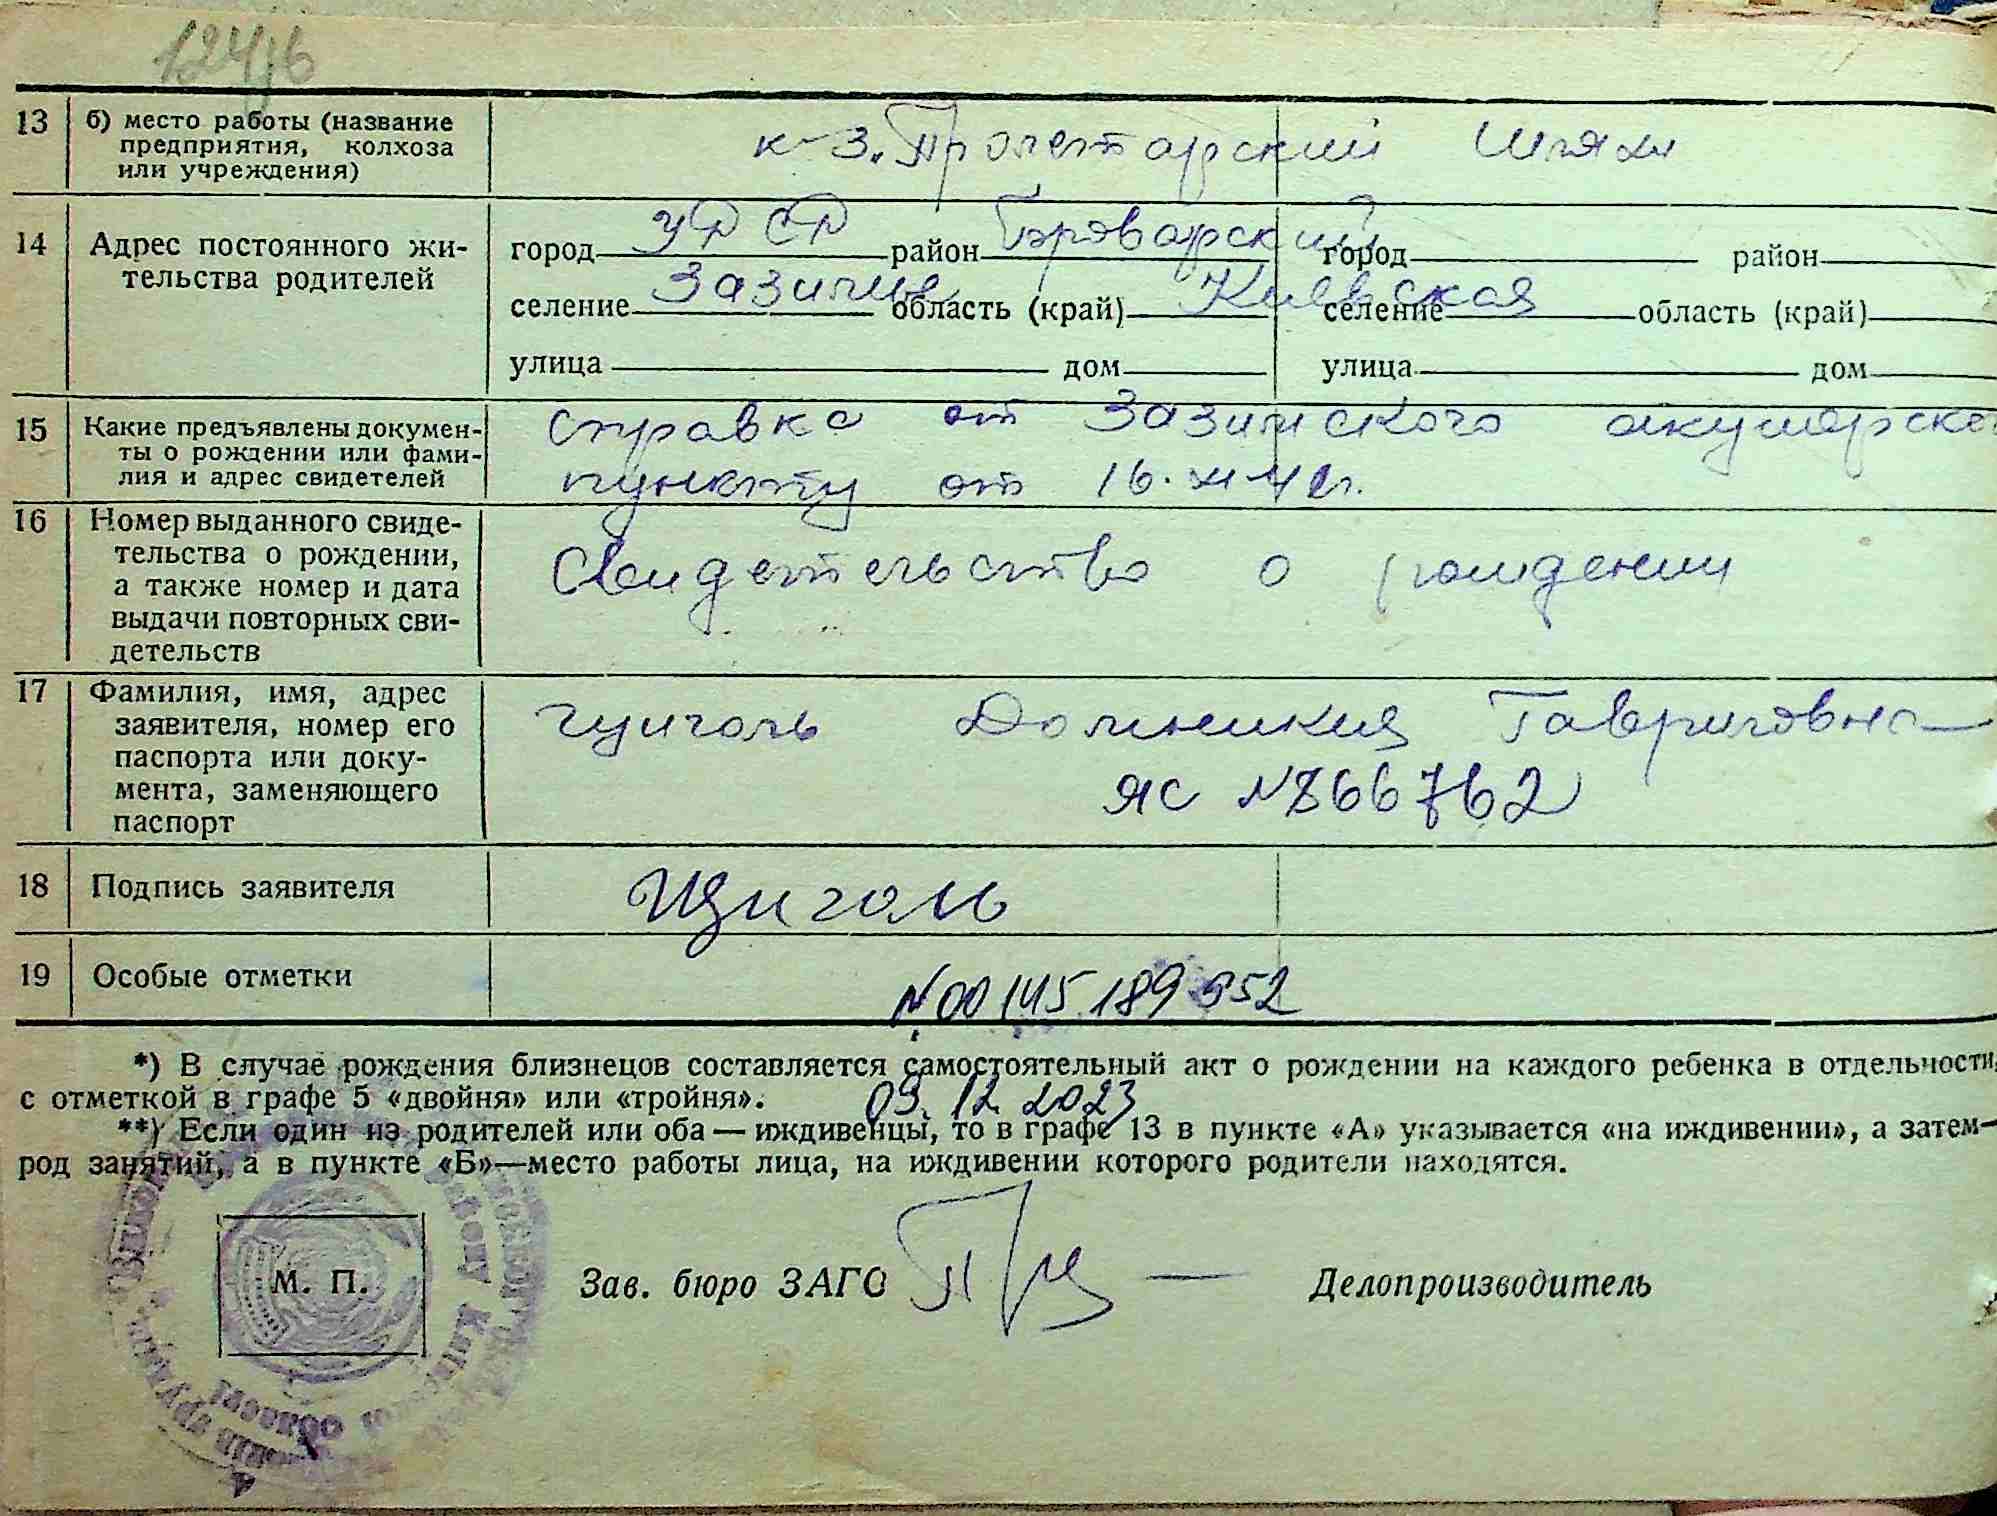 13 б) место работы (название
предприятия, колхоза
или учреждения)
к-з. Пролетарский Шлях
14 Адрес постоянного жи-
тельства родителей
город УРСР район Броварский город район
селение Зазимье область (край) Киевская селение область (край)
улица дом улица дом
15 Какие предъявлены докумен-
ты о рождении или фами-
лия и адрес свидетелей
справка от Зазимского акушерско
пункту от 16.
16 Номер выданного свиде-
тельства о рождении,
а также номер и дата
выдачи повторных сви-
детельств
Свидетельство о рождении
17 Фамилия, имя, адрес
заявителя, номер его
паспорта или доку-
мента, заменяющего
паспорт
Щиголь Домникия Гавриловна
ЯС №866762
18 Подпись заявителя Щиголь
19 Особые отметки №00145189952
*) В случае рождения близнецов составляется самостоятельный акт о рождении на каждого ребенка в отдельности,
с отметкой в графе 5 «двойня» или «тройня».
09.12.2023
**) Если один из родителей или оба — иждивенцы, то в графе 13 в пункте «А» указывается «на иждивении», а затем—
род занятий, а в пункте «Б»—место работы лица, на иждивении которого родители находятся.
М. П. Зав. бюро ЗАГС Делопроизводитель